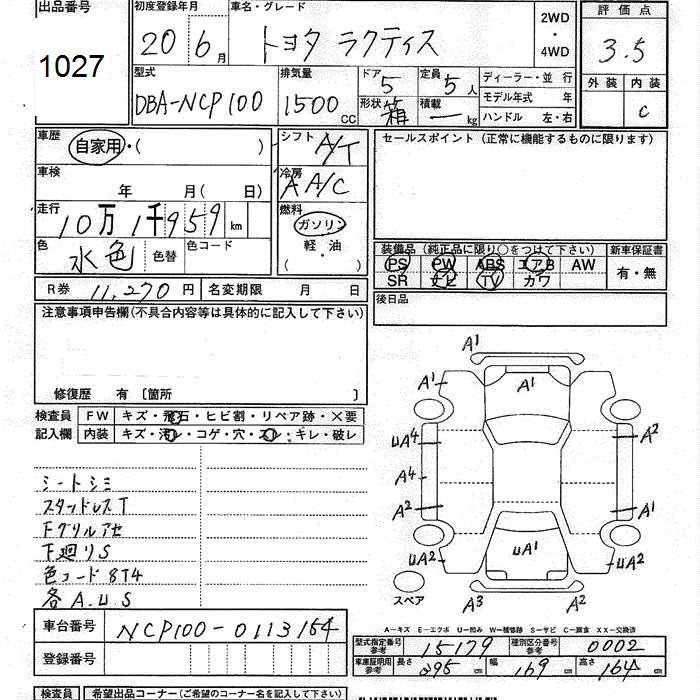 出品番号 初度登録年月 車名・グレード 2WD ・ 4WD 評価点
1027 20年 6月 トヨタ ラクティス 3.5
型式 排気量 ドア 5 定員 5人 ディーラー・並行 外装 内装
DBA-NCP100 1500CC 形状 箱 積載 ー kg モデル年式 年 C
ハンドル 左・右
車歴 自家用・( ) シフト A/T セールスポイント (正常に機能するものに限ります)
車検 年 月( 日) 冷房 AA/C
走行 10万1千959km 燃料 ガソリン 軽・油 ( )
色 水色 色替 色コード 装備品 (純正品に限り○をつけて下さい) 新車保証書
PS PW ABS エアB AW 有・無
SR ナビ TV カワ
R券 11,270円 名変期限 月 日 後日品
注意事項申告欄(不具合内容等は具体的に記入して下さい)
修復歴 有 〔箇所 〕
検査員 FW キズ・飛石・ヒビ割・リペア跡・×要
記入欄 内装 キズ・汚レ・コゲ・穴・スレ・キレ・破レ
A1
A1 A1
UA4 A2
A4
A2 A1
UA2 UA1 UA2
スペア A3 A2
シートシミ
スタッドレスT
Fグリルアセ
下廻りS
色コード8T4
各A.U.S
A-キズ E-エクボ U-凹み W-補修跡 S-サビ C-腐食 XX-交換済
車台番号 NCP100-0113164
型式指定番号 参考 15179 種別区分番号 参考 0002
登録番号 車庫証明用 参考 長さ 395cm 幅 169cm 高さ 164cm
検査員 希望出品コーナー(ご希望のコーナー名を記入して下さい)